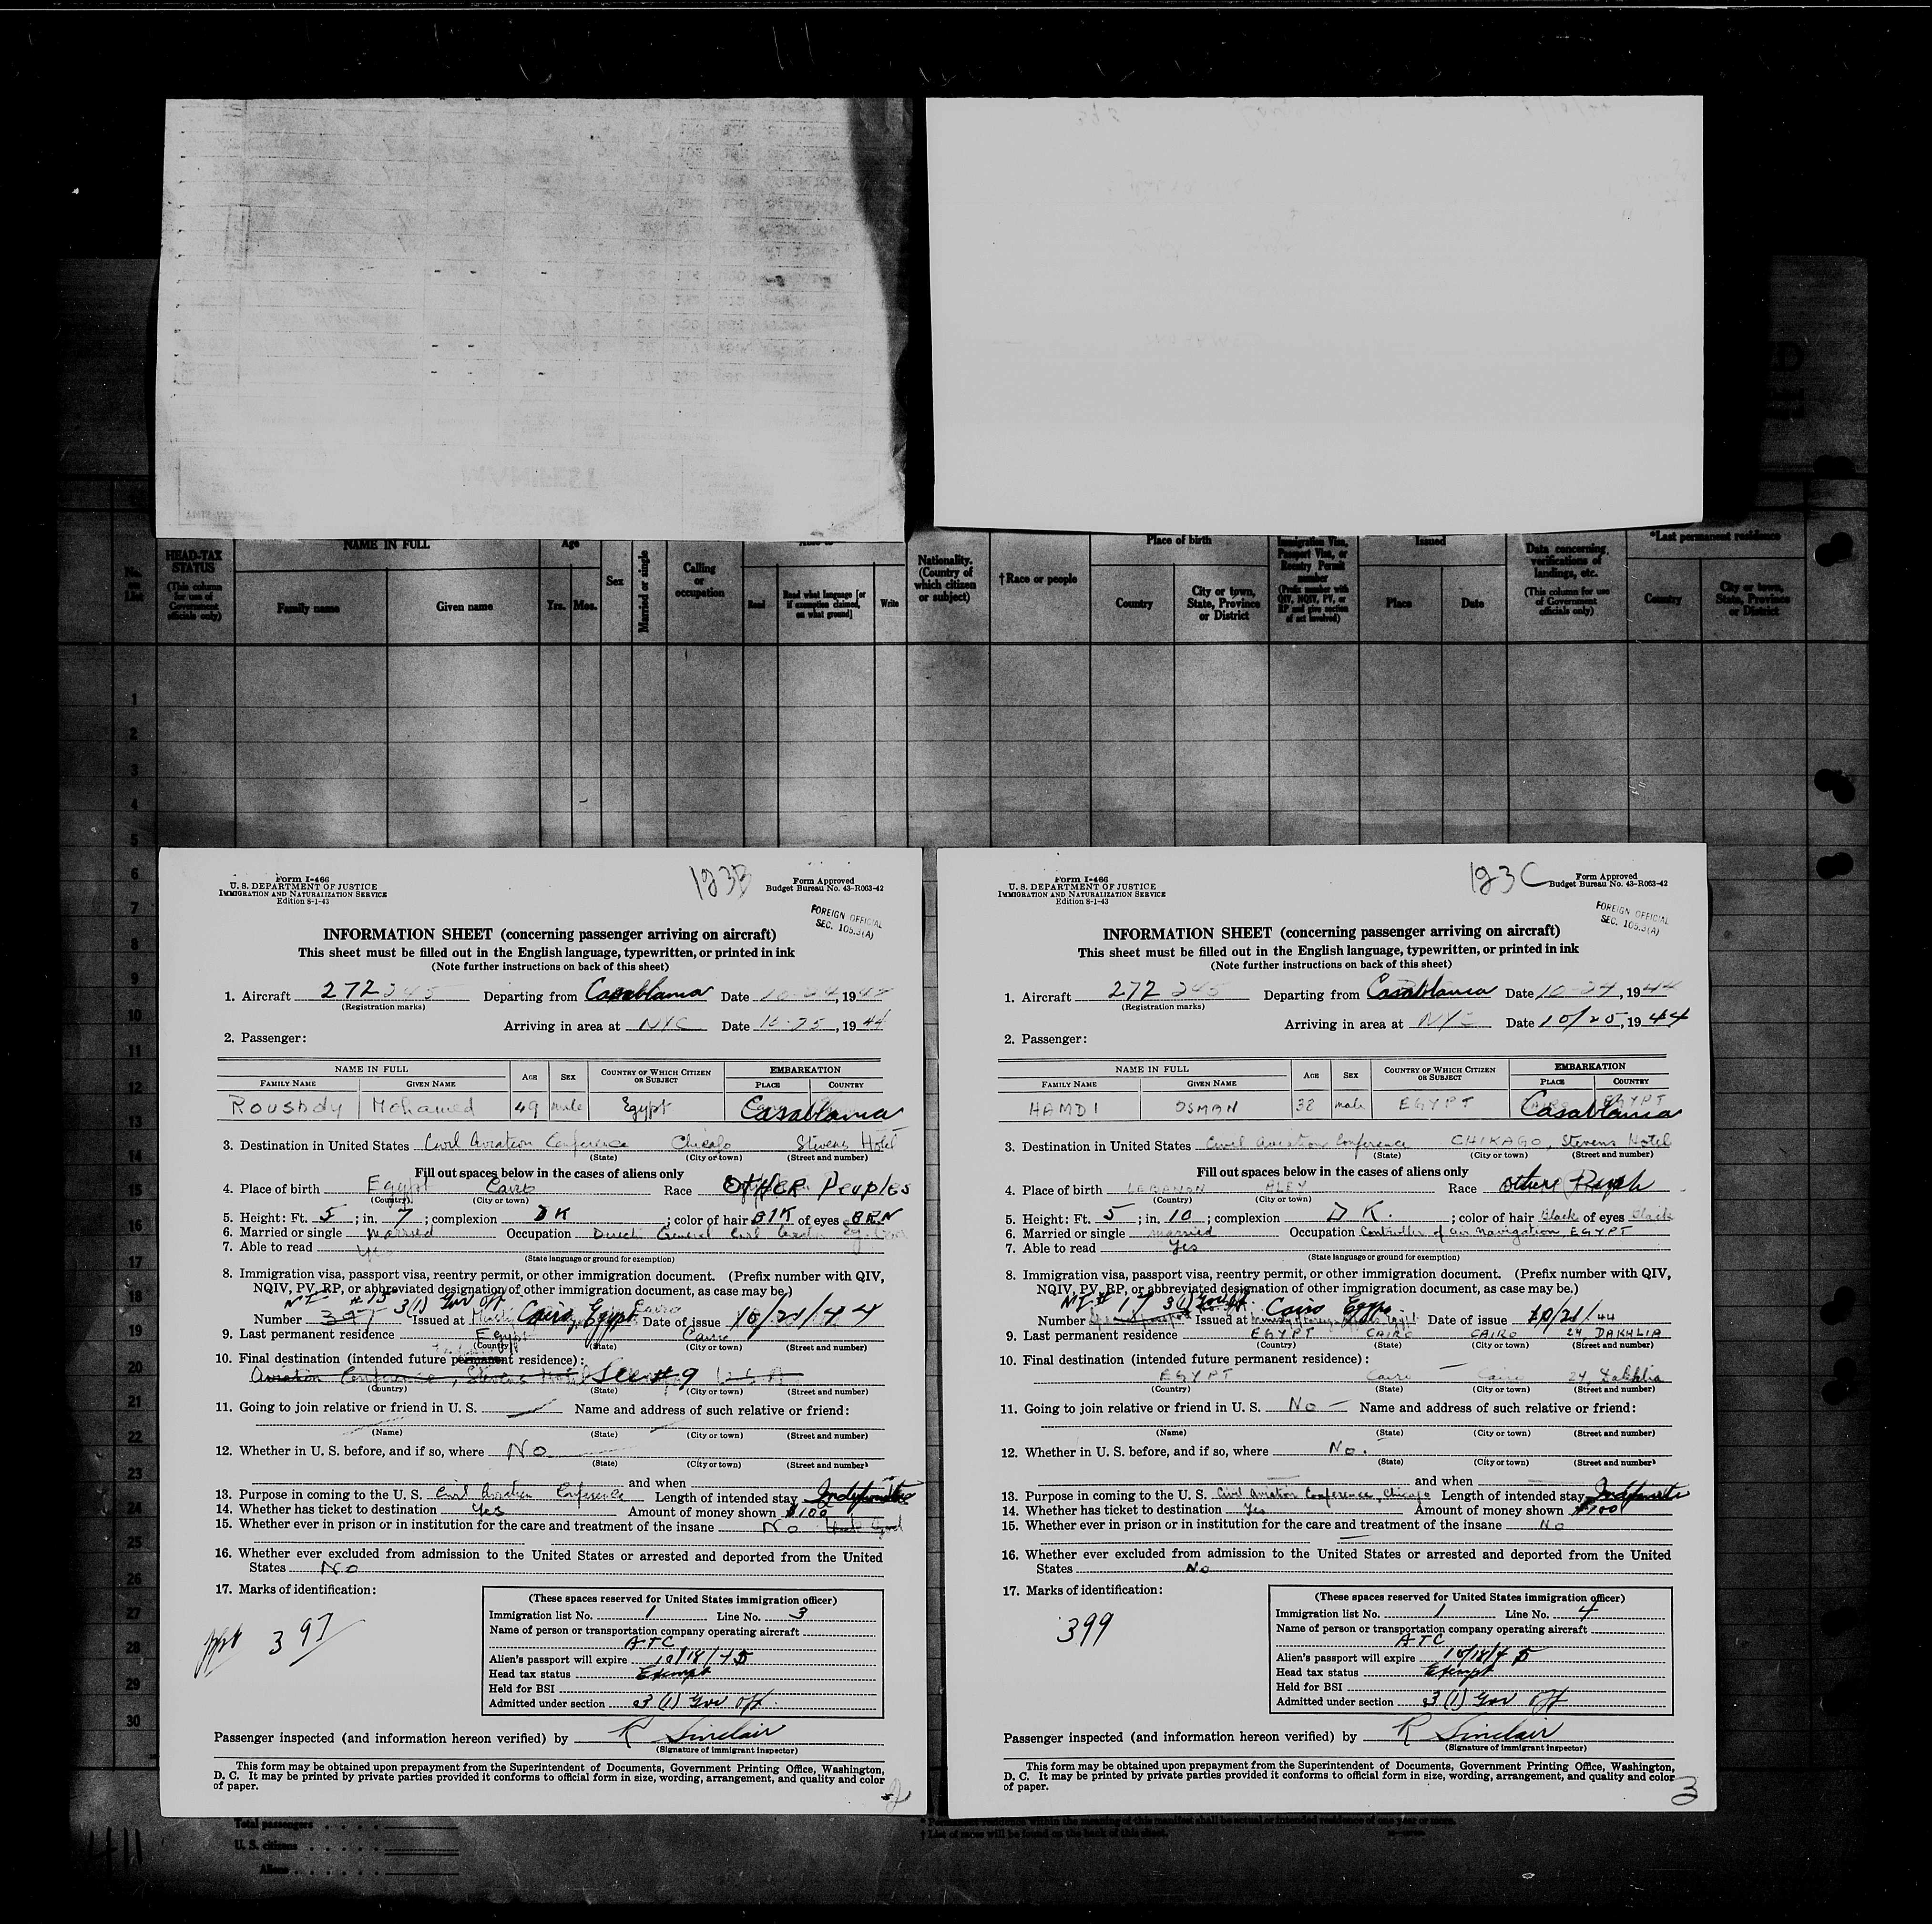 NAME IN FULL
Age
Place of birth
Issued
*Last permanent residence
HEAD-TAX STATUS
(This column for use of Government officials only)
Family name
Given name
Yrs.
Mos.
Sex
Married or single
Calling or occupation
Read
Read what language [or if exemption claimed, on what ground]
Write
Nationality. (Country of which citizen or subject)
†Race or people
Country
City or town, State, Province or District
Immigration Visa, Passport Visa, or Reentry Permit number
(Prefix number with QIV, NQIV, PV, or RP and give section of act involved)
Place
Date
Data concerning verifications of landings, etc.
(This column for use of Government officials only)
Country
City or town, State, Province or District
1
2
3
4
5
6
7
8
9
10
11
12
13
14
15
16
17
18
19
20
21
22
23
24
25
26
27
28
29
30
Form I-466
U. S. DEPARTMENT OF JUSTICE
IMMIGRATION AND NATURALIZATION SERVICE
Edition 8-1-43
123B
Form Approved
Budget Bureau No. 43-R063-42
FOREIGN OFFICIAL
SEC. 105.3(A)
INFORMATION SHEET (concerning passenger arriving on aircraft)
This sheet must be filled out in the English language, typewritten, or printed in ink
(Note further instructions on back of this sheet)
1. Aircraft 272 245 Departing from Casablanca Date 10-24, 1944
(Registration marks)
Arriving in area at NYC Date 10-25, 1944
2. Passenger:
NAME IN FULL
AGE
SEX
COUNTRY OF WHICH CITIZEN OR SUBJECT
EMBARKATION
FAMILY NAME
GIVEN NAME
PLACE
COUNTRY
Roushdy Mohamed 49 male Egypt Casablanca
3. Destination in United States Civil Aviation Conference Chicago Stevens Hotel
(State) (City or town) (Street and number)
Fill out spaces below in the cases of aliens only
4. Place of birth Egypt Cairo Race OTHER Peoples
(Country) (City or town)
5. Height: Ft. 5; in. 7; complexion DK; color of hair BlK of eyes BRN
6. Married or single Married Occupation Direct. General Civil Aviation
7. Able to read Yes
(State language or ground for exemption)
8. Immigration visa, passport visa, reentry permit, or other immigration document. (Prefix number with QIV,
NQIV, PV, RP, or abbreviated designation of other immigration document, as case may be.)
#15 3(1) Gov Off
Number 397 Issued at Cairo, Egypt Date of issue 10/21/44
9. Last permanent residence Egypt Cairo
(Country) (State) (City or town) (Street and number)
10. Final destination (intended future permanent residence):
Aviation Conference, Stevens Hotel See #9 U.S.A.
(Country) (State) (City or town) (Street and number)
11. Going to join relative or friend in U. S. Name and address of such relative or friend:
(Name) (State) (City or town) (Street and number)
12. Whether in U. S. before, and if so, where No
(State) (City or town) (Street and number)
and when
13. Purpose in coming to the U. S. Civil Aviation Conference Length of intended stay Indefinite
14. Whether has ticket to destination Yes Amount of money shown $100
15. Whether ever in prison or in institution for the care and treatment of the insane No
16. Whether ever excluded from admission to the United States or arrested and deported from the United
States No
17. Marks of identification:
ppt 397
(These spaces reserved for United States immigration officer)
Immigration list No. 1 Line No. 3
Name of person or transportation company operating aircraft
ATC
Alien's passport will expire 10/18/45
Head tax status Exempt
Held for BSI
Admitted under section 3(1) Gov Off.
Passenger inspected (and information hereon verified) by R Sinclair
(Signature of immigrant inspector)
This form may be obtained upon prepayment from the Superintendent of Documents, Government Printing Office, Washington,
D. C. It may be printed by private parties provided it conforms to official form in size, wording, arrangement, and quality and color
of paper.
2
Form I-466
U. S. DEPARTMENT OF JUSTICE
IMMIGRATION AND NATURALIZATION SERVICE
Edition 8-1-43
123C
Form Approved
Budget Bureau No. 43-R063-42
FOREIGN OFFICIAL
SEC. 105.3(A)
INFORMATION SHEET (concerning passenger arriving on aircraft)
This sheet must be filled out in the English language, typewritten, or printed in ink
(Note further instructions on back of this sheet)
1. Aircraft 272 245 Departing from Casablanca Date 10-24, 1944
(Registration marks)
Arriving in area at NYC Date 10/25, 1944
2. Passenger:
NAME IN FULL
AGE
SEX
COUNTRY OF WHICH CITIZEN OR SUBJECT
EMBARKATION
FAMILY NAME
GIVEN NAME
PLACE
COUNTRY
HAMDI OSMAN 38 male EGYPT CAIRO EGYPT Casablanca
3. Destination in United States Civil Aviation Conference CHIKAGO, Stevens Hotel
(State) (City or town) (Street and number)
Fill out spaces below in the cases of aliens only
4. Place of birth LEBANON ALEY Race Other Peoph
(Country) (City or town)
5. Height: Ft. 5; in. 10; complexion DK.; color of hair Black of eyes Black
6. Married or single married Occupation Controller of air Navigation, EGYPT
7. Able to read Yes
(State language or ground for exemption)
8. Immigration visa, passport visa, reentry permit, or other immigration document. (Prefix number with QIV,
NQIV, PV, RP, or abbreviated designation of other immigration document, as case may be.)
# 17 3(1) Gov Off. Cairo Egypt
Number Issued at Date of issue 10/21/44
9. Last permanent residence EGYPT CAIRO CAIRO 24, DAKHLIA
(Country) (State) (City or town) (Street and number)
10. Final destination (intended future permanent residence):
EGYPT Cairo Cairo 24, Dakhlia
(Country) (State) (City or town) (Street and number)
11. Going to join relative or friend in U. S. No — Name and address of such relative or friend:
(Name) (State) (City or town) (Street and number)
12. Whether in U. S. before, and if so, where No.
(State) (City or town) (Street and number)
and when
13. Purpose in coming to the U. S. Civil Aviation Conference, Chicago Length of intended stay Indefinite
14. Whether has ticket to destination Yes Amount of money shown $100
15. Whether ever in prison or in institution for the care and treatment of the insane No
16. Whether ever excluded from admission to the United States or arrested and deported from the United
States No
17. Marks of identification:
399
(These spaces reserved for United States immigration officer)
Immigration list No. 1 Line No. 4
Name of person or transportation company operating aircraft
ATC
Alien's passport will expire 10/18/45
Head tax status Exempt
Held for BSI
Admitted under section 3(1) Gov Off
Passenger inspected (and information hereon verified) by R Sinclair
(Signature of immigrant inspector)
This form may be obtained upon prepayment from the Superintendent of Documents, Government Printing Office, Washington,
D. C. It may be printed by private parties provided it conforms to official form in size, wording, arrangement, and quality and color
of paper.
3
Total passengers
U. S. citizens
Aliens
* Permanent residence within the meaning of this manifest shall be actual or intended residence of one year or more.
† List of races will be found on the back of this sheet.
411